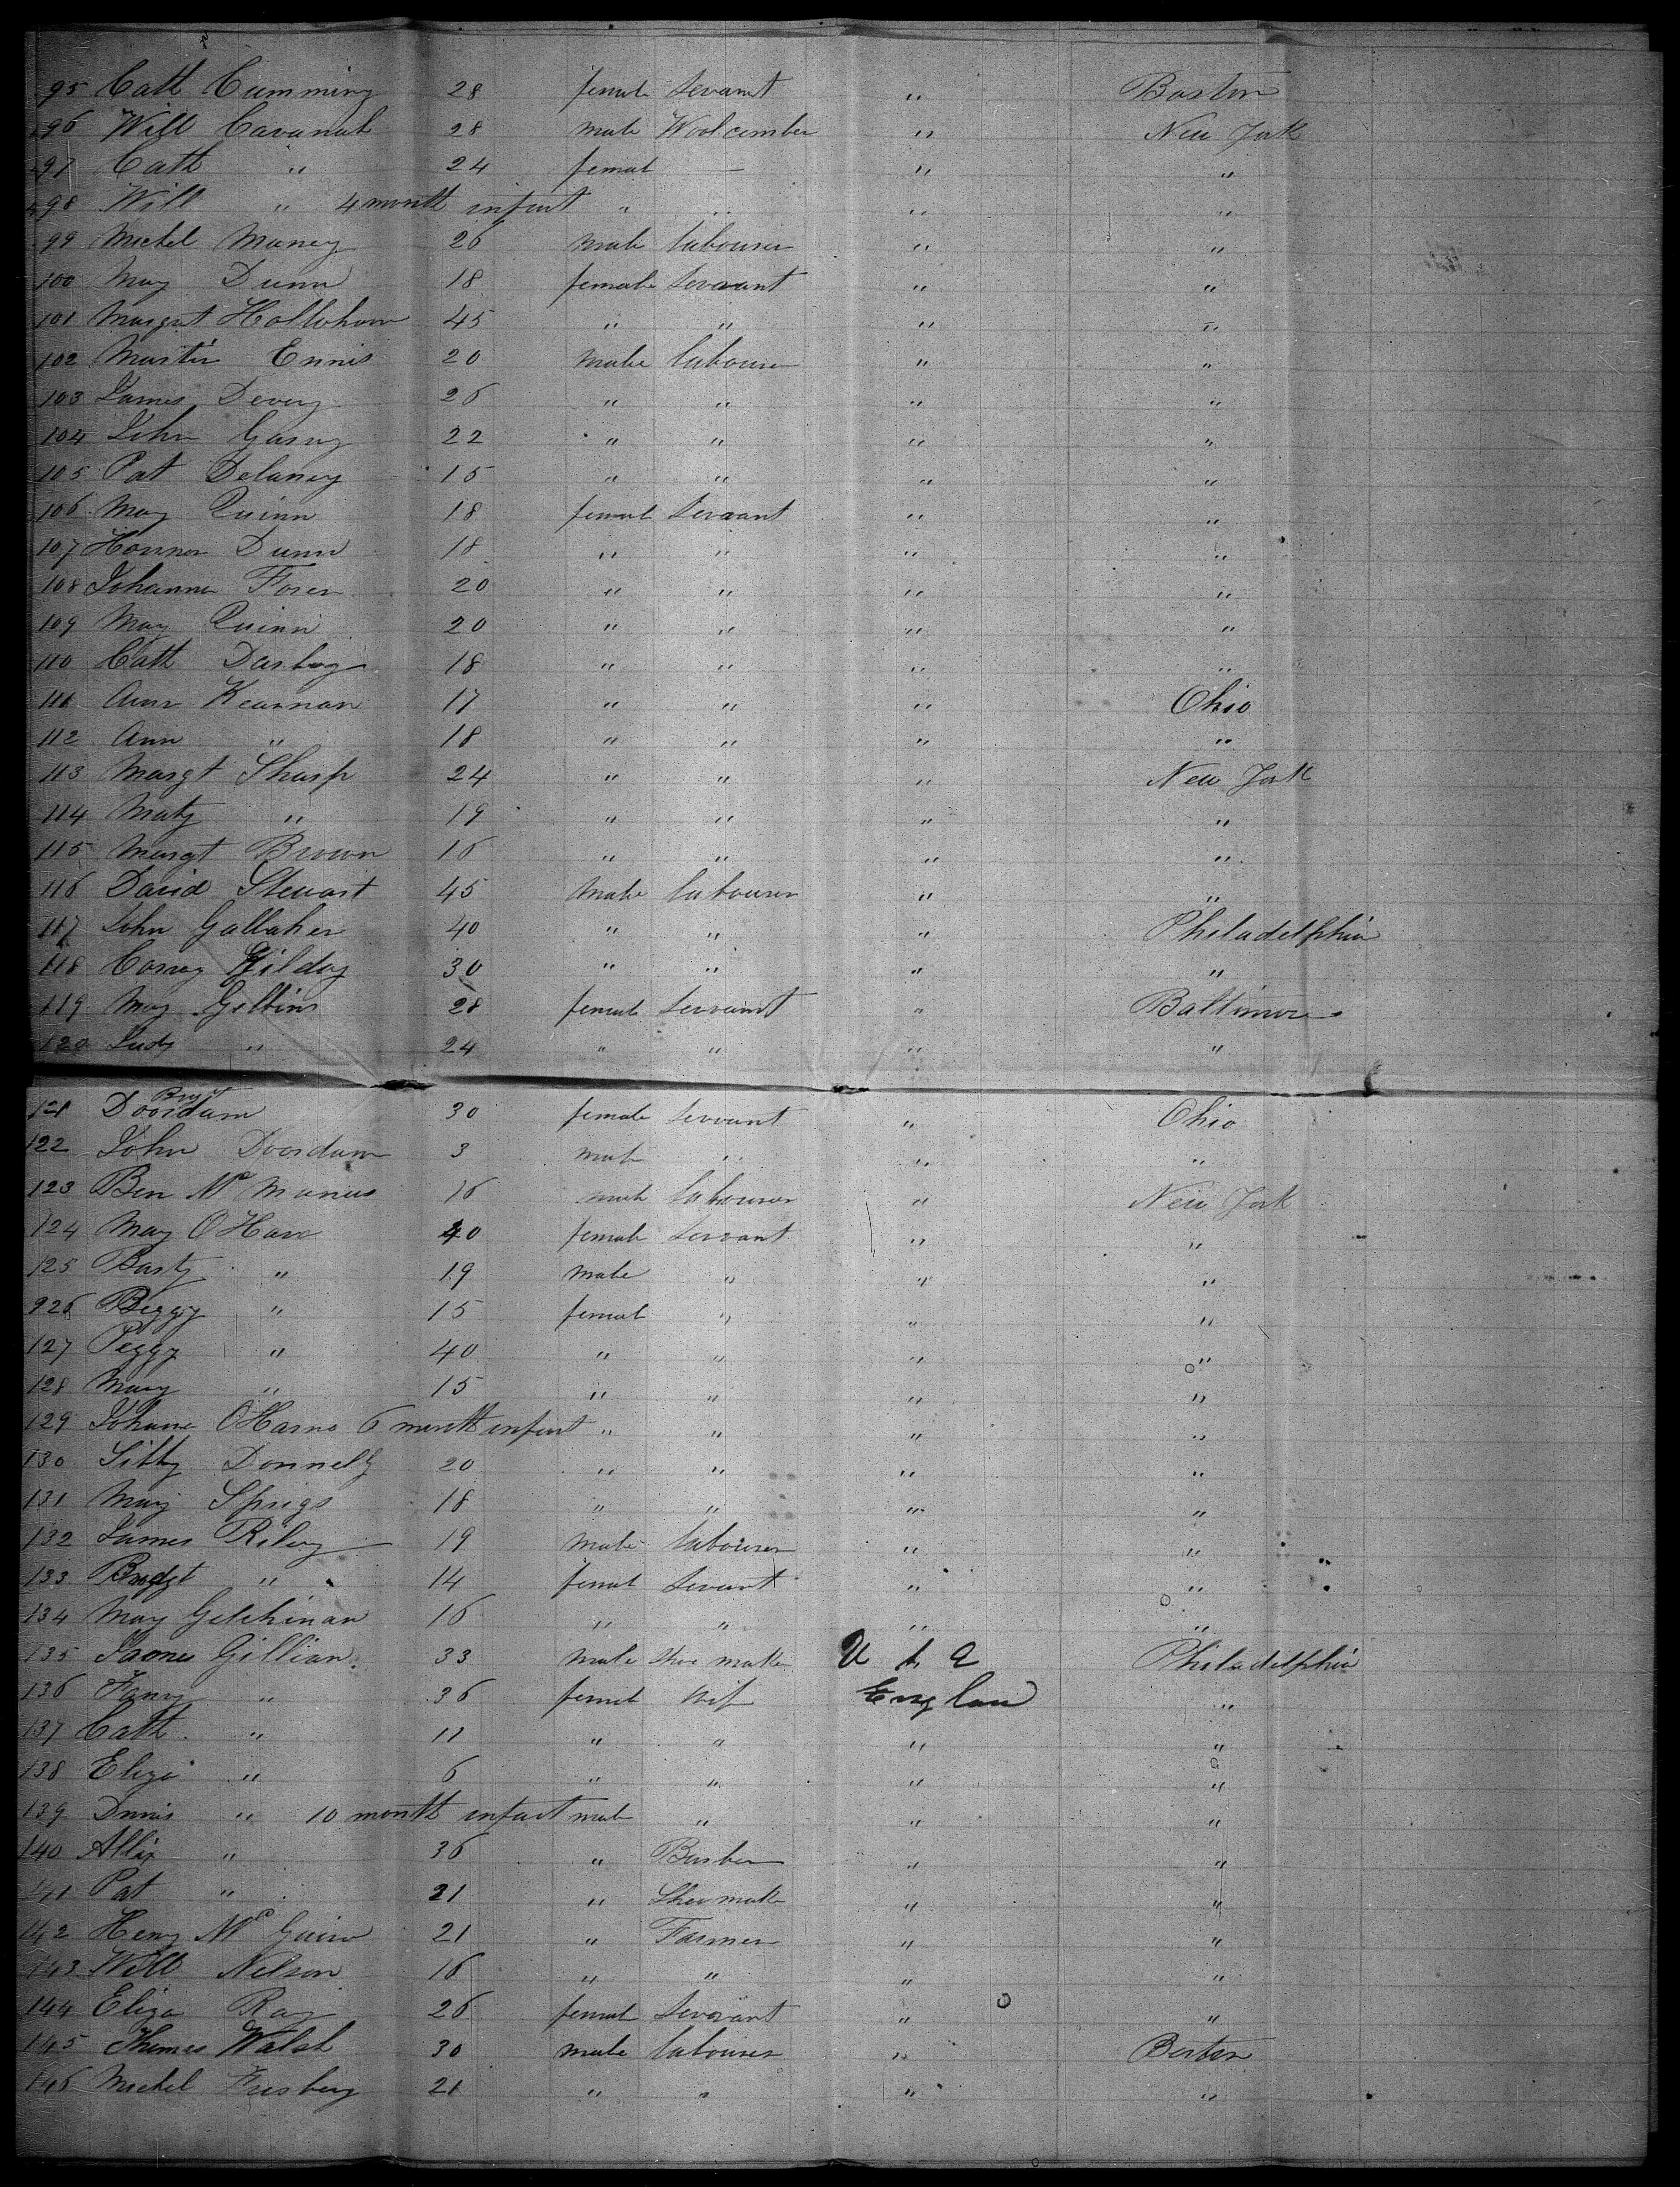 95 Cath Cumming 28 female Servant " Boston
96 Will Cavanah 28 male Woolcomber " New York
97 Cath " 24 femal — " "
98 Will " 4 month infant " " " "
99 Michel Maney 26 male labourer " "
100 May Dunn 18 female Servant " "
101 Margrat Hollohan 45 " " " "
102 Martin Ennis 20 male labourer " "
103 James Devery 26 " " " "
104 John Garry 22 " " " "
105 Pat Delaney 15 " " " "
106 May Quinn 18 femal Servant " "
107 Honnor Dunn 18 " " " "
108 Johanna Foren 20 " " " "
109 May Quinn 20 " " " "
110 Cath Darbey 18 " " " "
111 Ann Kearnan 17 " " " Ohio
112 Ann " 18 " " " "
113 Margt Sharp 24 " " " New York
114 Maty " 19 " " " "
115 Margt Brown 16 " " " "
116 David Stewart 45 male labourer " "
117 John Gallaher 40 " " " Philadelphia
118 Gilday 30 " " " "
119 May Gibbins 28 female Servant " Baltimore
120 Judy " 24 " " " "
121 Doordam 30 female Servant " Ohio
122 John Doordam 3 male " " "
123 Ben Mc Manus 16 male labourer " New York
124 May O Hare 40 female Servant " "
125 Barty " 19 male " " "
926 Beggy " 15 femal " " "
127 Peggy " 40 " " " "
128 Mary " 15 " " " "
129 Johana O Harns 6 month infant " " " "
130 Sibby Donnelly 20 " " " "
131 May Sprigs 18 " " " "
132 James Riley 19 male labourer " "
133 Bridgt " 14 femal Servant " "
134 May Gelchinan 16 " " " "
135 James Gillian 33 male Shoe make U S A Philadelphia
136 Fanny " 36 femal wif Englan "
137 Cath " 11 " " " "
138 Eliza " 6 " " " "
139 Dnnis " 10 month infant male " " "
140 Allix " 36 " Barber " "
141 Pat " 21 " Shoemake " "
142 Heny Mc Guire 21 " Farmer " "
143 Will Nelson 16 " " " "
144 Eliza Ray 26 femal Servant " "
145 Thomes Walsh 30 male labourer " Boston
146 Michel 21 " " " "